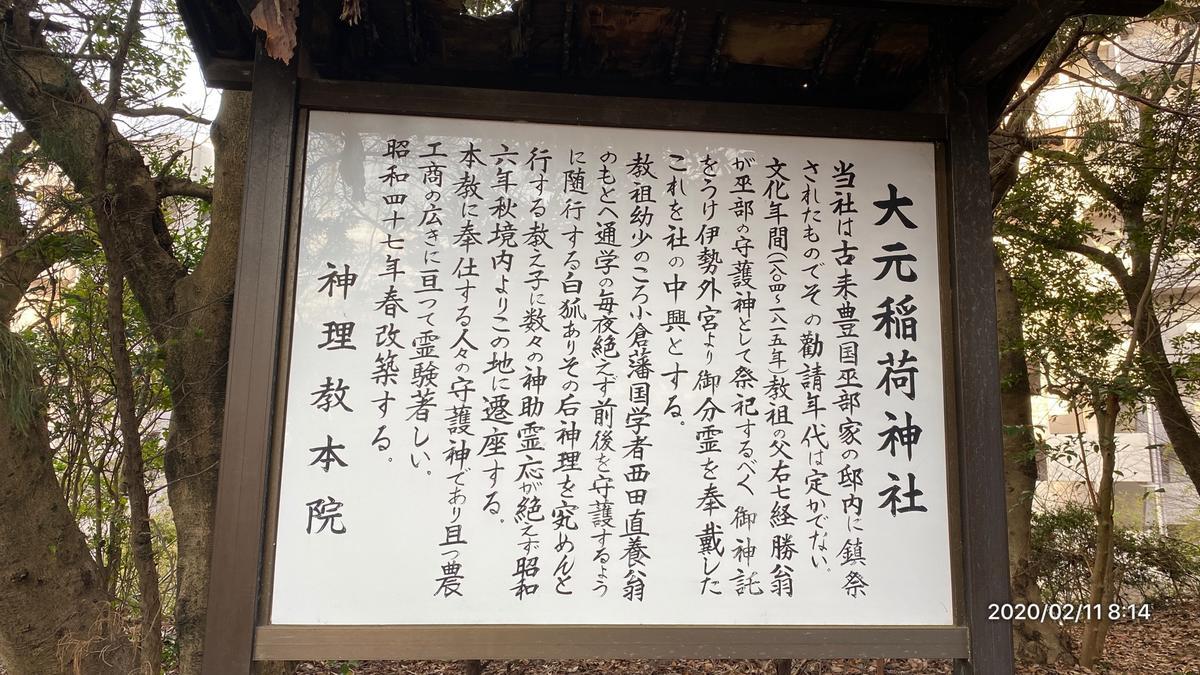 大元稲荷神社
当社は古来豊国巫部家の邸内に鎮祭
されたものでその勧請年代は定かでない。
文化年間(一八〇四〜一八一五年)教祖の父右七経勝翁
が巫部の守護神として祭祀するべく御神託
をうけ伊勢外宮より御分霊を奉戴した
これを社の中興とする。
教祖幼少のころ小倉藩国学者西田直養翁
のもとへ通学の毎夜絶えず前後を守護するよう
に随行する白狐ありその后神理を究めんと
行する教え子に数々の神助霊応が絶えず昭和
六年秋境内よりこの地に遷座する。
本教に奉仕する人々の守護神であり且つ農
工商の広きに亘って霊験著しい。
昭和四十七年春改築する。
神理教本院
2020/02/11 8:14